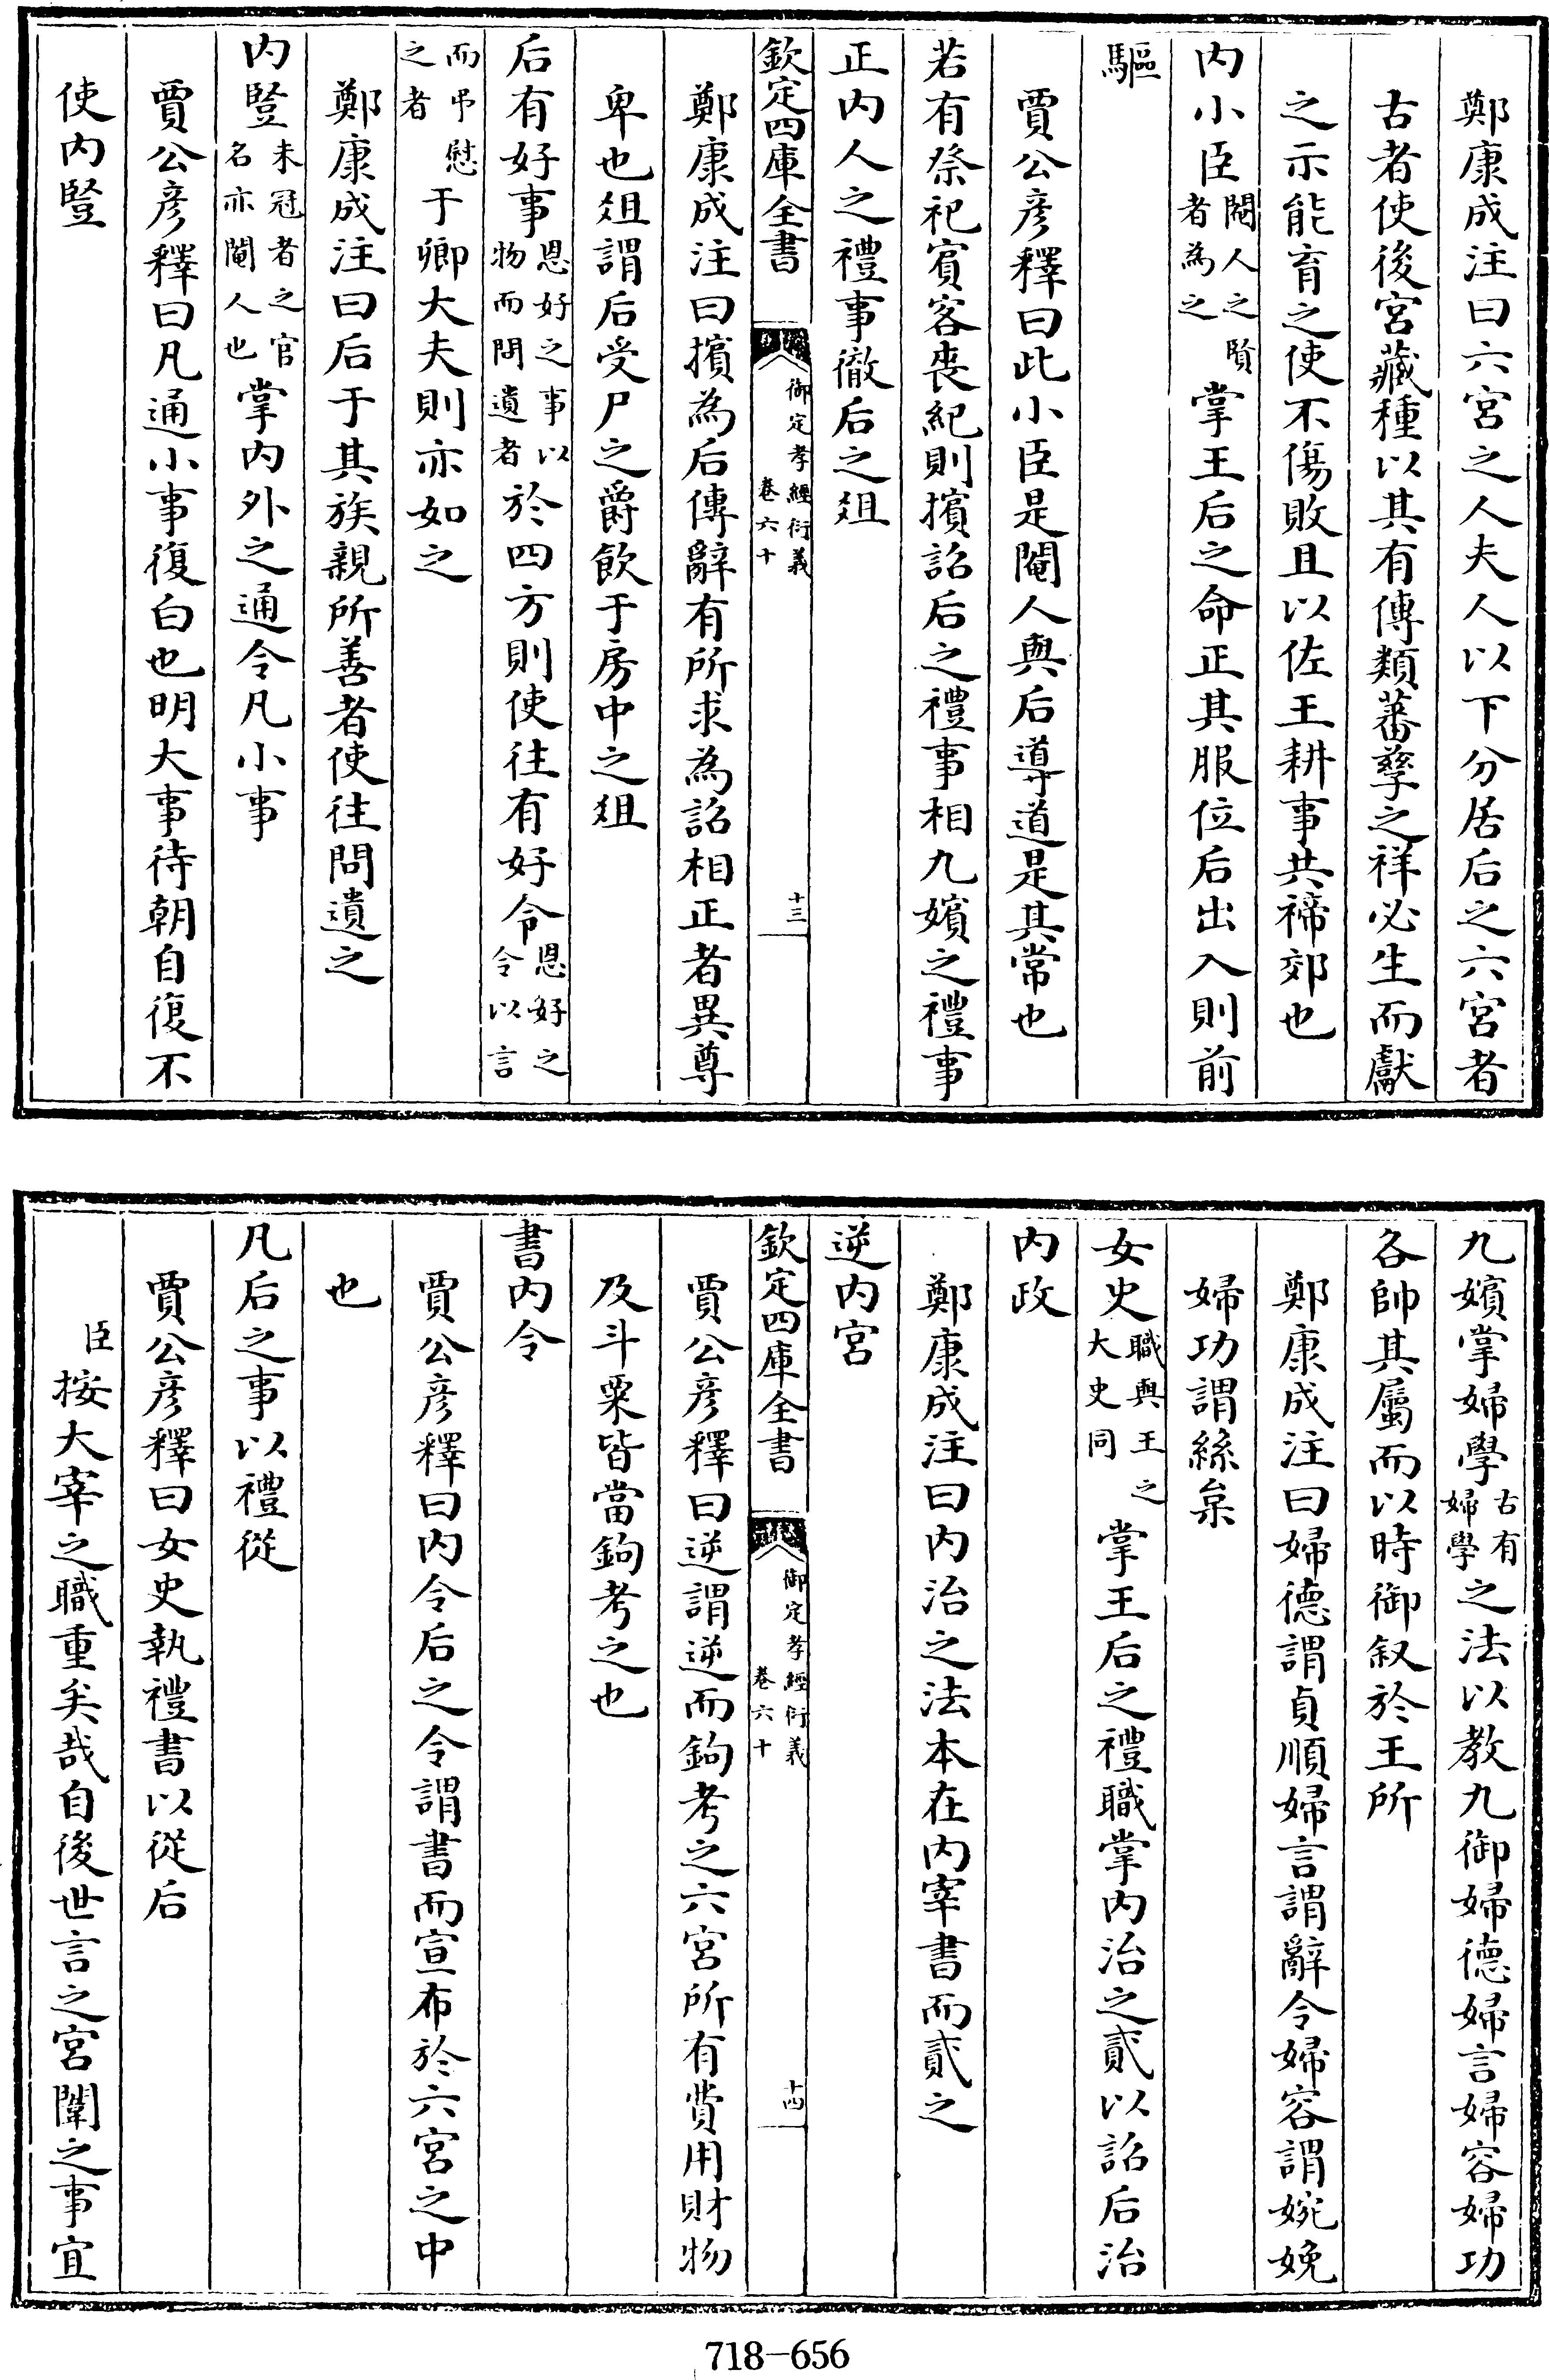 鄭康成注曰六宮之人夫人以下分居后之六宮者
古者使後宮藏種以其有傳類蕃孳之祥必生而獻
之示能育之使不傷敗且以佐王耕事共禘郊也
内小臣閹人之賢者為之掌王后之命正其服位后出入則前
驅
賈公彥釋曰此小臣是閹人與后導道是其常也
若有祭祀賓客喪紀則擯詔后之禮事相九嬪之禮事
正内人之禮事徹后之俎
欽定四庫全書 御定孝經衍義 卷六十 十三
鄭康成注曰擯為后傳辭有所求為詔相正者異尊
卑也俎謂后受尸之爵飲于房中之俎
后有好事恩好之事以物而問遺者於四方則使往有好令恩好之令以言
而弔慰之者于卿大夫則亦如之
鄭康成注曰后于其族親所善者使往問遺之
内豎未冠者之官名亦閹人也掌内外之通令凡小事
賈公彥釋曰凡通小事復白也明大事待朝自復不
使内豎
九嬪掌婦學古有婦學之法以教九御婦德婦言婦容婦功
各帥其屬而以時御叙於王所
鄭康成注曰婦德謂貞順婦言謂辭令婦容謂婉娩
婦功謂絲枲
女史職與王之大史同掌王后之禮職掌内治之貳以詔后治
内政
鄭康成注曰内治之法本在内宰書而貳之
逆内宮
欽定四庫全書 御定孝經衍義 卷六十 十四
賈公彥釋曰逆謂逆而鉤考之六宮所有費用財物
及斗粟皆當鉤考之也
書内令
賈公彥釋曰内令后之令謂書而宣布於六宮之中
也
凡后之事以禮從
賈公彥釋曰女史執禮書以從后
臣按大宰之職重矣哉自後世言之宮闈之事宜
718-656